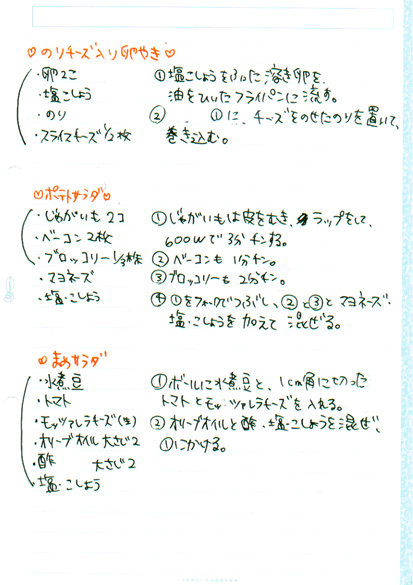 ♡のりチーズ入り卵やき♡
・卵2コ
・塩こしょう
・のり
・スライスチーズ1/2枚
①塩こしょうをふった溶き卵を、
油をひいたフライパンに流す。
② ①に、チーズをのせたのりを置いて、
巻き込む。
♡ポテトサラダ♡
・じゃがいも2コ
・ベーコン2枚
・ブロッコリー1/3株
・マヨネーズ
・塩・こしょう
①じゃがいもは皮をむき、ラップをして、
600Wで3分チンする。
②ベーコンも1分チン。
③ブロッコリーも2分チン。
④①をフォークでつぶし、②と③とマヨネーズ・
塩・こしょうを加えて混ぜる。
♡まめサラダ
・水煮豆
・トマト
・モッツァレラチーズ(生)
・オリーブオイル大さじ2
・酢 大さじ2
・塩・こしょう
①ボールに水煮豆と、1cm角に切った
トマトとモッツァレラチーズを入れる。
②オリーブオイルと酢・塩・こしょうを混ぜ、
①にかける。